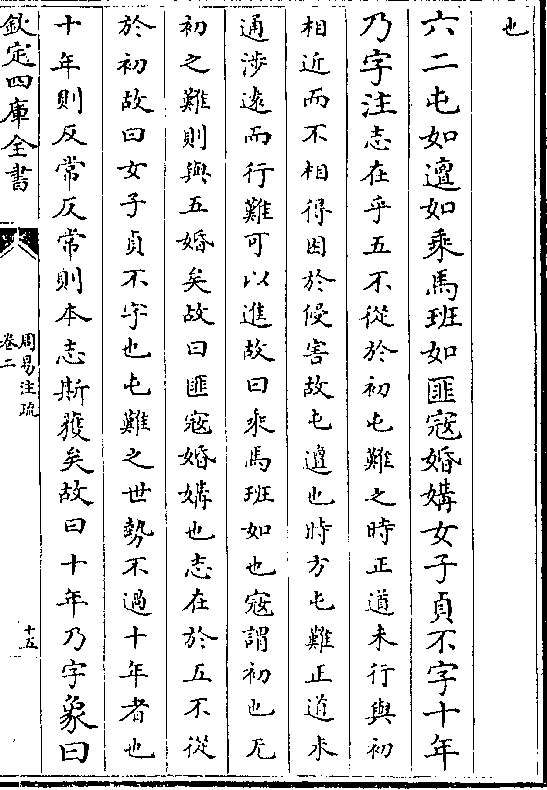 也
六二屯如邅如乘馬班如匪寇婚媾女子貞不字十年
乃字注志在乎五不從於初屯難之時正道未行與初
相近而不相得困於侵害故屯邅也時方屯難正道未
通渉逺而行難可以進故曰乘馬班如也寇謂初也无
初之難則與五婚矣故曰匪寇婚媾也志在於五不從
於初故曰女子貞不字也屯難之世勢不過十年者也
十年則反常反常則本志斯獲矣故曰十年乃字象曰
欽定四庫全書
周易注疏
卷二
十五